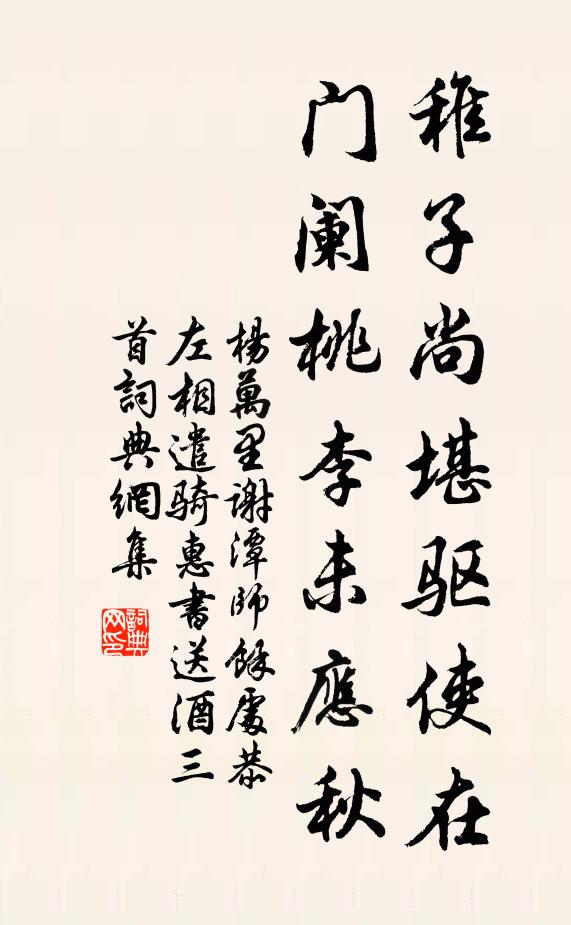 稚子尚堪驱使在
门阑桃李未應秋
楊萬里謝潭師餘處恭
左相遣骑惠書送酒三
首詞典網集
詞典
网印